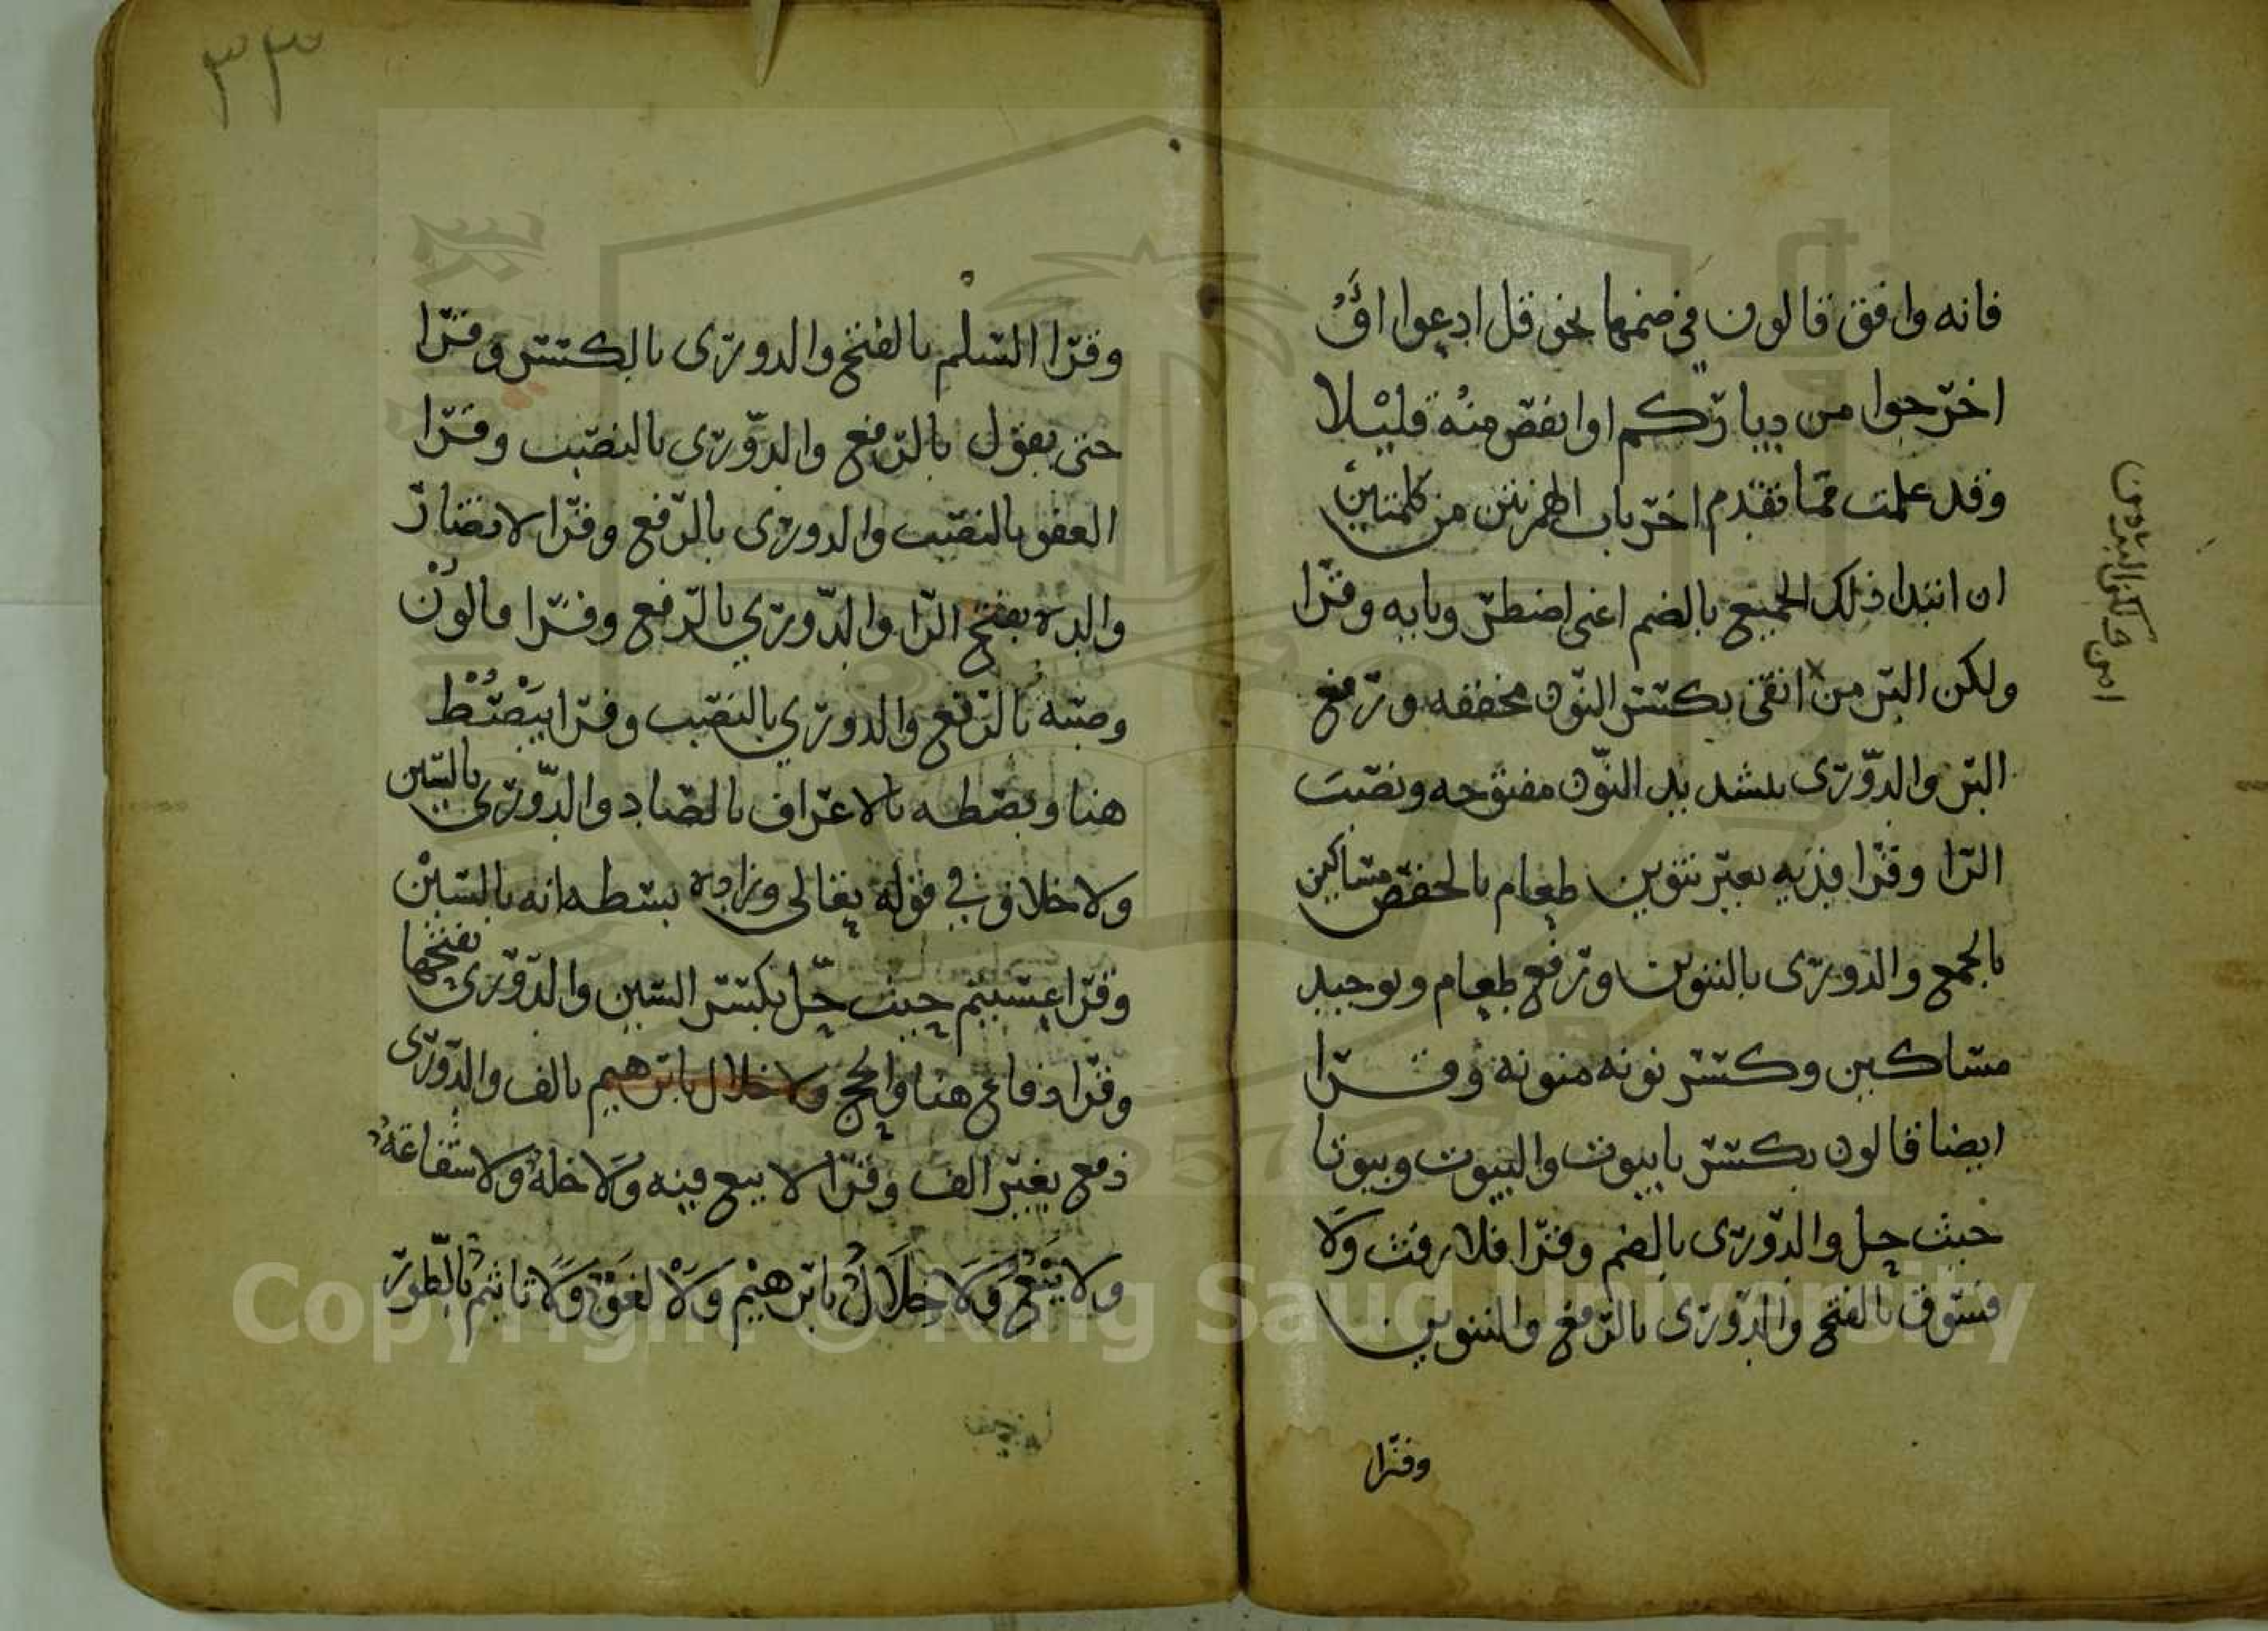 فانه وافق قالون في ضمهما نحو قل ادعوا او
اخرجوا من دياركم او انقص منه قليلا
وقد علمت مما تقدم اخر باب الهمزتين من كلمتين
ان ابتدا ذلك الجميع بالضم اعني اضطر وبابه وقرا
ولكن البر من اتقى بكسر النون مخففه ورفع
البر والدوري بتشديد النون مفتوحه ونصب
الرا وقرا فديه بغير تنوين طعام بالخفض مساكين
بالجمع والدوري بالتنوين ورفع طعام وتوحيد
مساكين وكسر نونه منونه وقرا
ايضا قالون بكسر با بيوت والبيوت وبيوتا
حيث حل والدوري بالضم وقرا فلا رفث ولا
فسوق بالفتح والدوري بالرفع والتنوين
وقرا
٣٣
وقرا السلم بالفتح والدوري بالكسر وقرا
حتى يقول بالرفع والدوري بالنصب وقرا
العفو بالنصب والدوري بالرفع وقرا لا تضار
والده بفتح الرا والدوري بالرفع وقرا قالون
وصيه بالرفع والدوري بالنصب وقرا يبصط
هنا وبصطه بالاعراف بالصاد والدوري بالسين
ولا خلاف في قوله تعالى وزاده بسطه انه بالسين
وقرا عسيتم حيث حل بكسر السين والدوري بفتحها
وقرا دفاع هنا والحج ولا خلال بابرهيم بالف والدوري
دفع بغير الف وقرا لا بيع فيه ولا خلة ولا شفاعة
ولا بيع ولا خلال بابرهيم ولا لغو ولا تاثيم بالطور
Copyright © King Saud University
1957